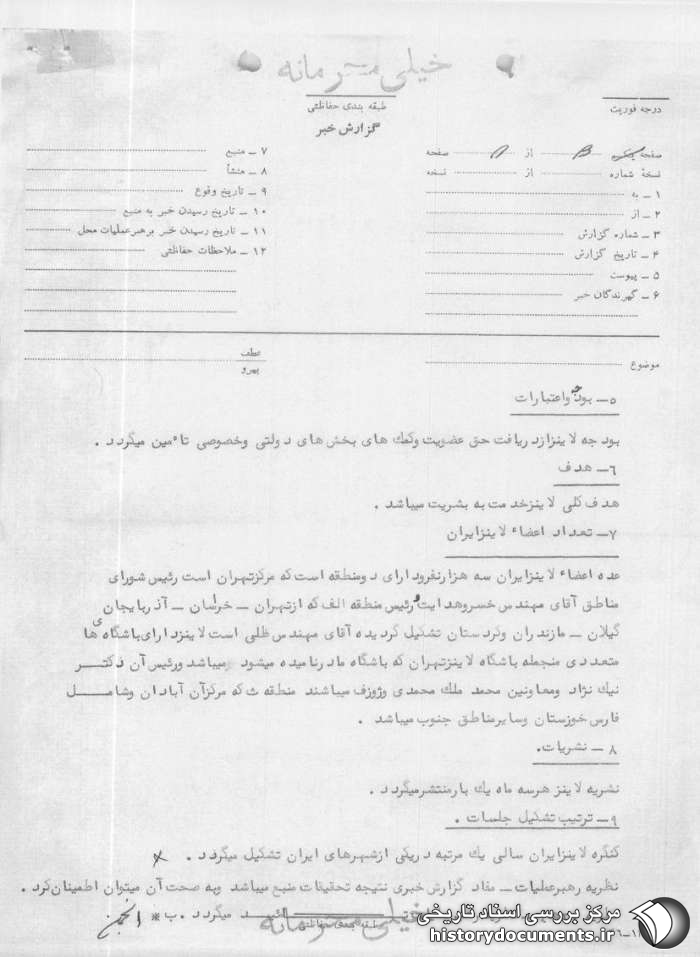 خیلی محرمانه
طبقه بندی حفاظتی
درجه فوریت
گزارش خبر
صفحه از صفحه
نسخهٔ شماره از نسخه
۱ ـ به
۲ ـ از
۳ ـ شماره گزارش
۴ ـ تاریخ گزارش
۵ ـ پیوست
۶ ـ گیرندگان خبر
۷ ـ منبع
۸ ـ منشأ
۹ ـ تاریخ وقوع
۱۰ ـ تاریخ رسیدن خبر به منبع
۱۱ ـ تاریخ رسیدن خبر برهبر عملیات محل
۱۲ ـ ملاحظات حفاظتی
موضوع
عطف
پیرو
۵ـ بودجه واعتبارات
بودجه لاینزازدریافت حق عضویت وکمک های بخش های دولتی وخصوصی تاٴمین میگردد .
۶ـ هدف
هدف کلی لاینزخدمت به بشریت میباشد .
۷ـ تعداد اعضاء لاینزایران
عده اعضاء لاینزایران سه هزارنفرودارای دومنطقه است که مرکزتهران است رئیس شورای
مناطق آقای مهندس خسروهدایت ورئیس منطقه الف که ازتهران ـ خراسان ـ آذربایجان
گیلان ـ مازندران وکردستان تشکیل گردیده آقای مهندس ظلی است لاینزدارای باشگاه های
متعددی منجمله باشگاه لاینزتهران که باشگاه مادرنامیده میشود میباشد ورئیس آن دکتر
نیک نژاد ومعاونین محمد ملک محمدی وژوزف میباشند منطقه ث که مرکزآن آبادان وشامل
فارس خوزستان وسایرمناطق جنوب میباشد .
۸ ـ نشریات .
نشریه لاینز هرسه ماه یک بارمنتشرمیگردد .
۹ـ ترتیب تشکیل جلسات .
کنگره لاینزایران سالی یک مرتبه دریکی ازشهرهای ایران تشکیل میگردد .
نظریه رهبرعملیات ـ مفاد گزارش خبری نتیجه تحقیقات منبع میباشد وبه صحت آن میتوان اطمینان کرد .
میگردد . ب * انجمن
طبقه بندی حفاظتی
خیلی محرمانه
مرکز بررسی اسناد تاریخی
historydocuments.ir